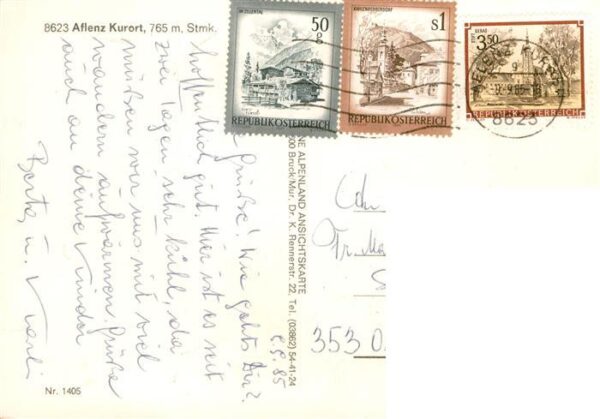 8623 Aflenz Kurort, 765 m, Stmk.
50
g
REPUBLIK ÖSTERREICH
s1
REPUBLIK ÖSTERREICH
3.50
REPUBLIK ÖSTERREICH
8623
Grüße! Wie gehts Dir?
hoffentlich gut. Hier ist es seit
zwei Tagen sehr kühl, da
müßen wir uns mit viel
wandern aufwärmen. Grüße
auch an deine Kinder
Berta u. Karli
9.9.85
NE ALPENLAND ANSICHTSKARTE
00 Bruck/Mur, Dr. K. Rennerstr. 22, Tel. (03862) 54-41-24
An
Fr.
353
Nr. 1405